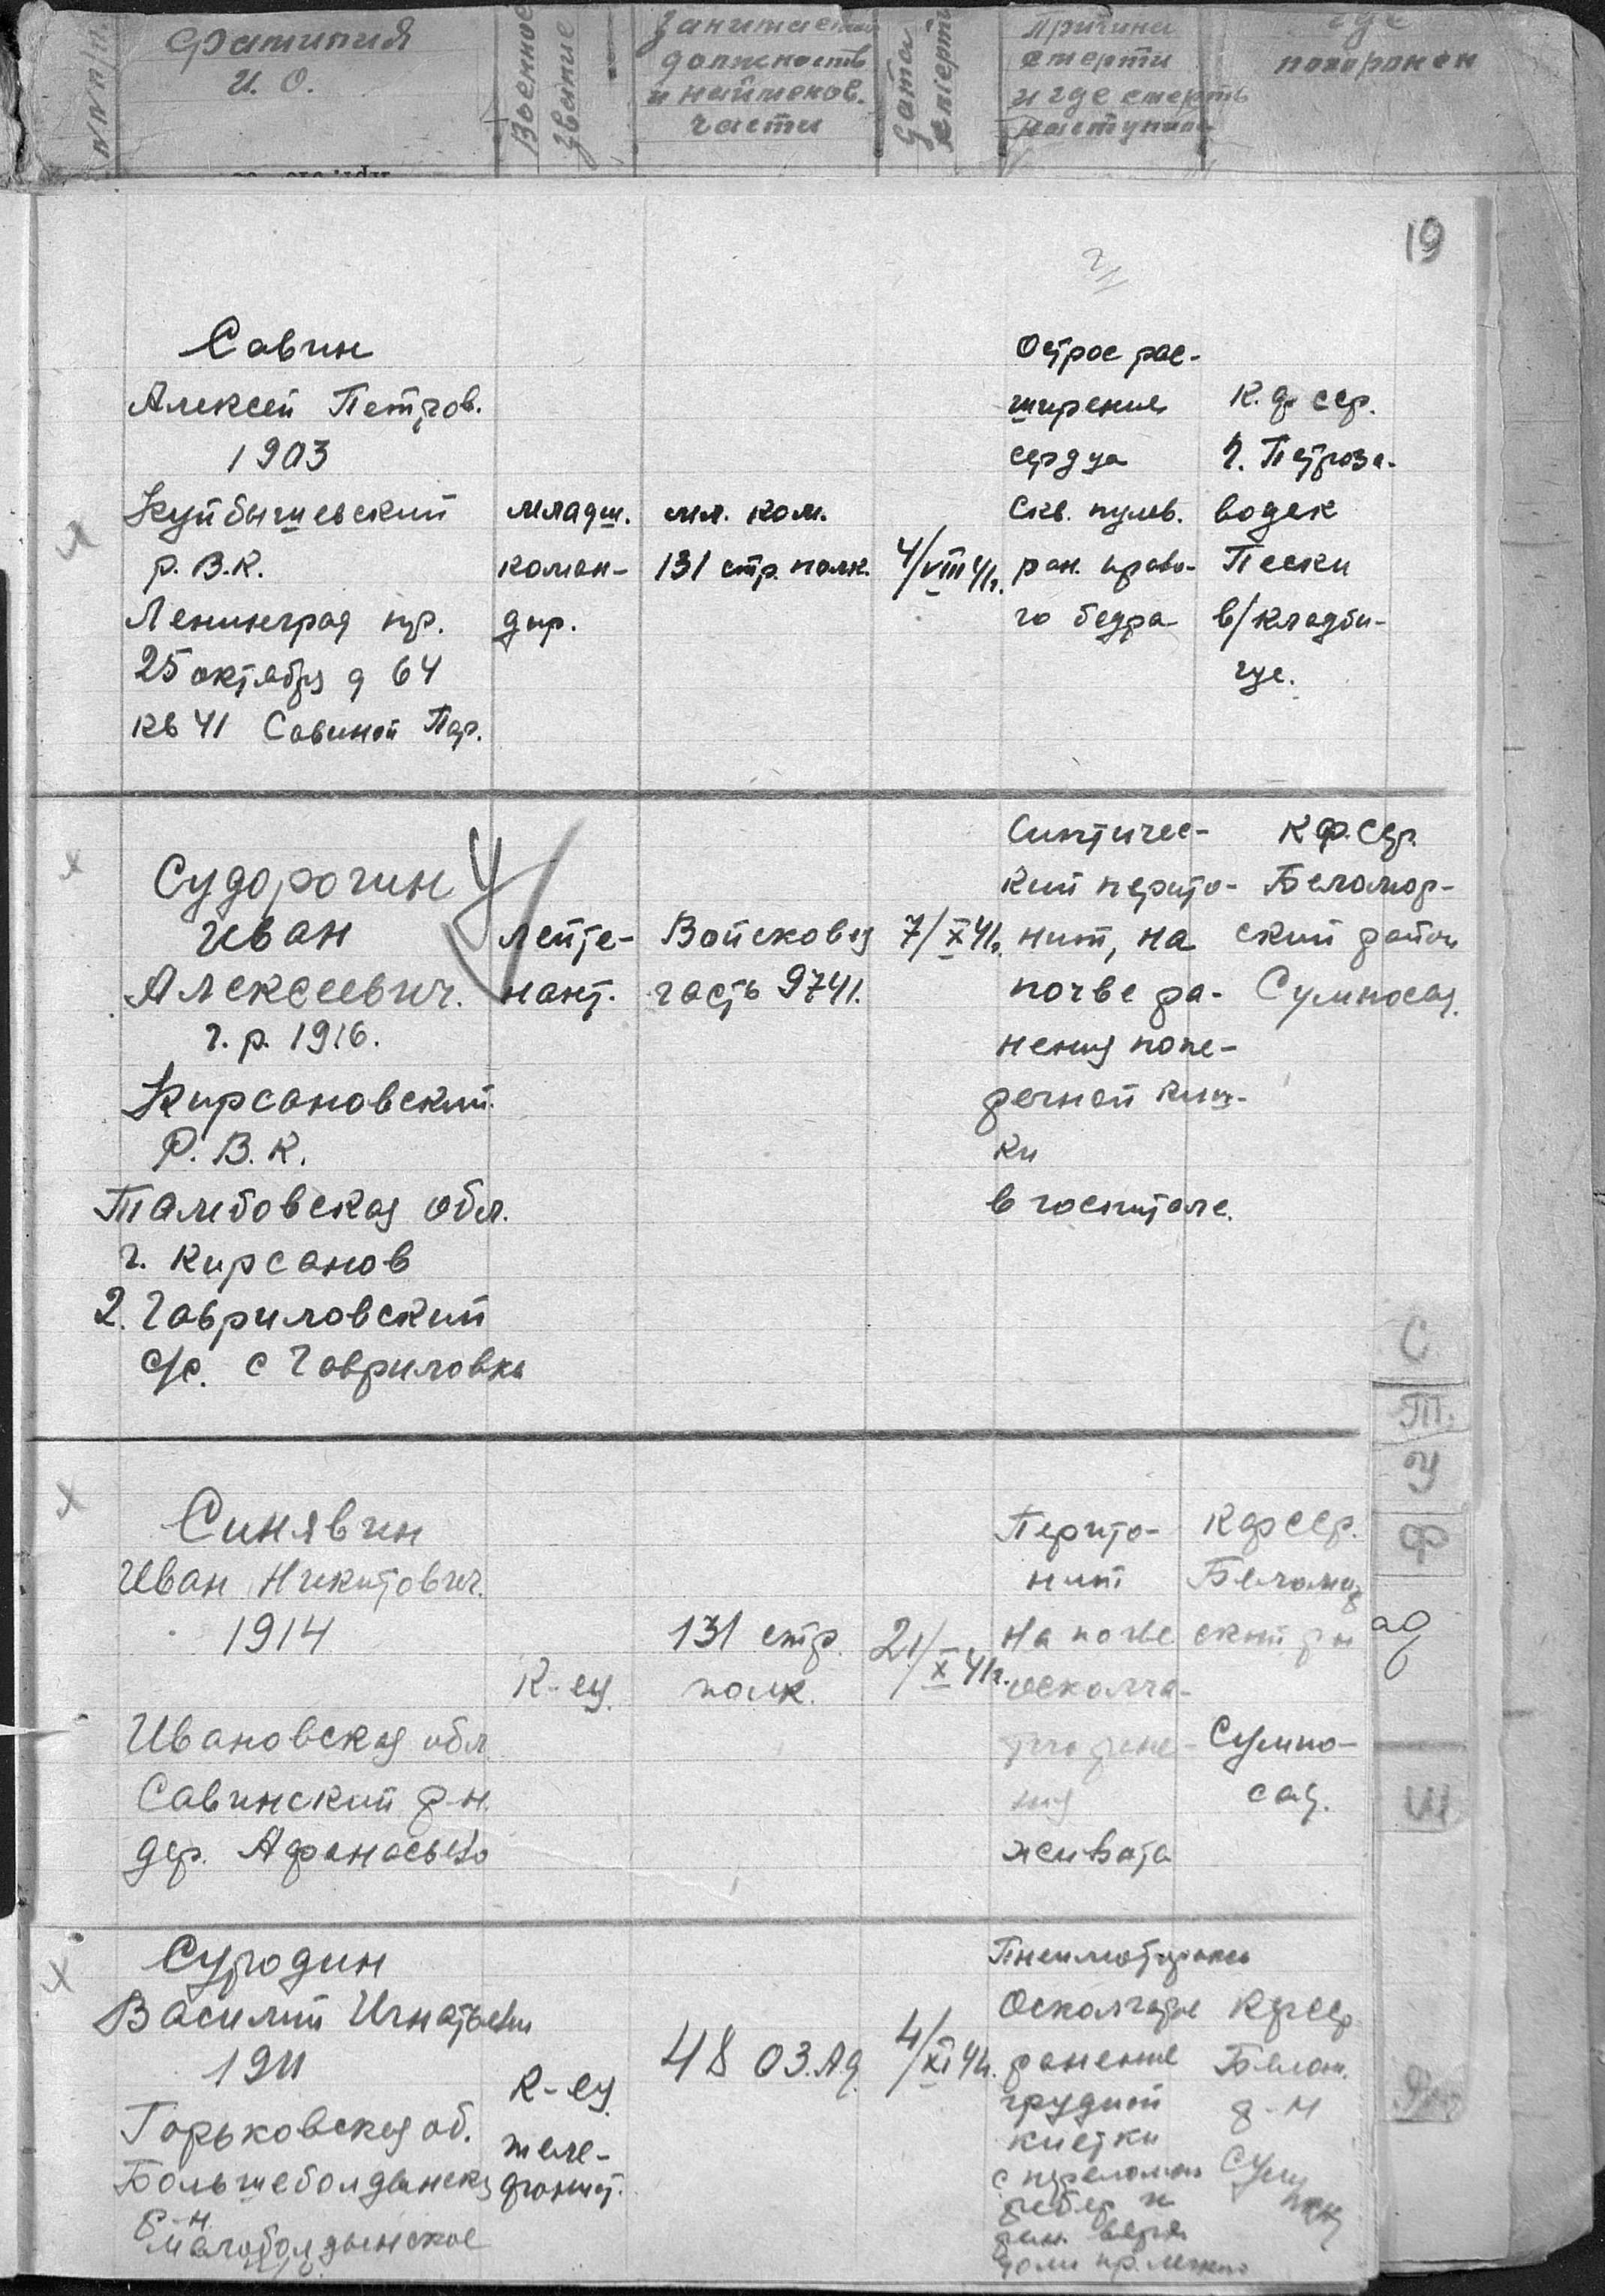 №№ п/п
Фамилия
И. О.
Военное
звание
Занимаем
должность
и наименов.
части
Дата
смерти
Причина
смерти
и где смерть
наступила
где
похоронен
19
Савин
Алексей Петров.
1903
Куйбышевский
р. В.К.
Ленинград пр.
25 октября д 64
кв 41 Савиной
младш.
коман-
дир.
мл. ком.
131 стр. полк.
4/VIII 41г.
Острое рас-
ширение
сердца
Скв. пулев.
ран. право-
го бедра
К. ф сср.
г. Петроза-
водск
Пески
в/кладби-
ще.
Судорогин
Иван
Алексеевич.
г. р. 1916.
Кирсановский
Р. В. К.
Тамбовская обл.
г. Кирсанов
2. Гавриловский
с/с. с Гавриловка
Лейте-
нант.
Войсковая
часть 9741.
7/X 41г.
Септичес-
кий перито-
нит, на
почве ра-
нения попе-
речной киш-
ки
в госпитале.
К.Ф. сср.
Беломор-
ский район
Сумпосад.
Синявин
Иван Никитович.
1914
Ивановская обл
Савинский р-н.
дер. Афанасьево
К-ец.
131 стр.
полк.
21/X 41г.
Перито-
нит
на почве
осколоч-
ния
живота
Кфсср.
Беломор
ский р-н
Сумпо-
сад.
Суродин
Василий Игнатьевич
1911
Горьковская об.
Большеболдынск
р-н
Малоболдынское
К-ец.
теле-
фонист.
48 ОЗ.Ад.
4/XI 41г.
Пневмоторакс
Осколочное
ранение
грудной
клетки
с переломом
ребер и
ран. верх
доли пр. легкого
Кфсср
Белом.
р-н
Сум
С
Т.
У
Ф
ад
Ш